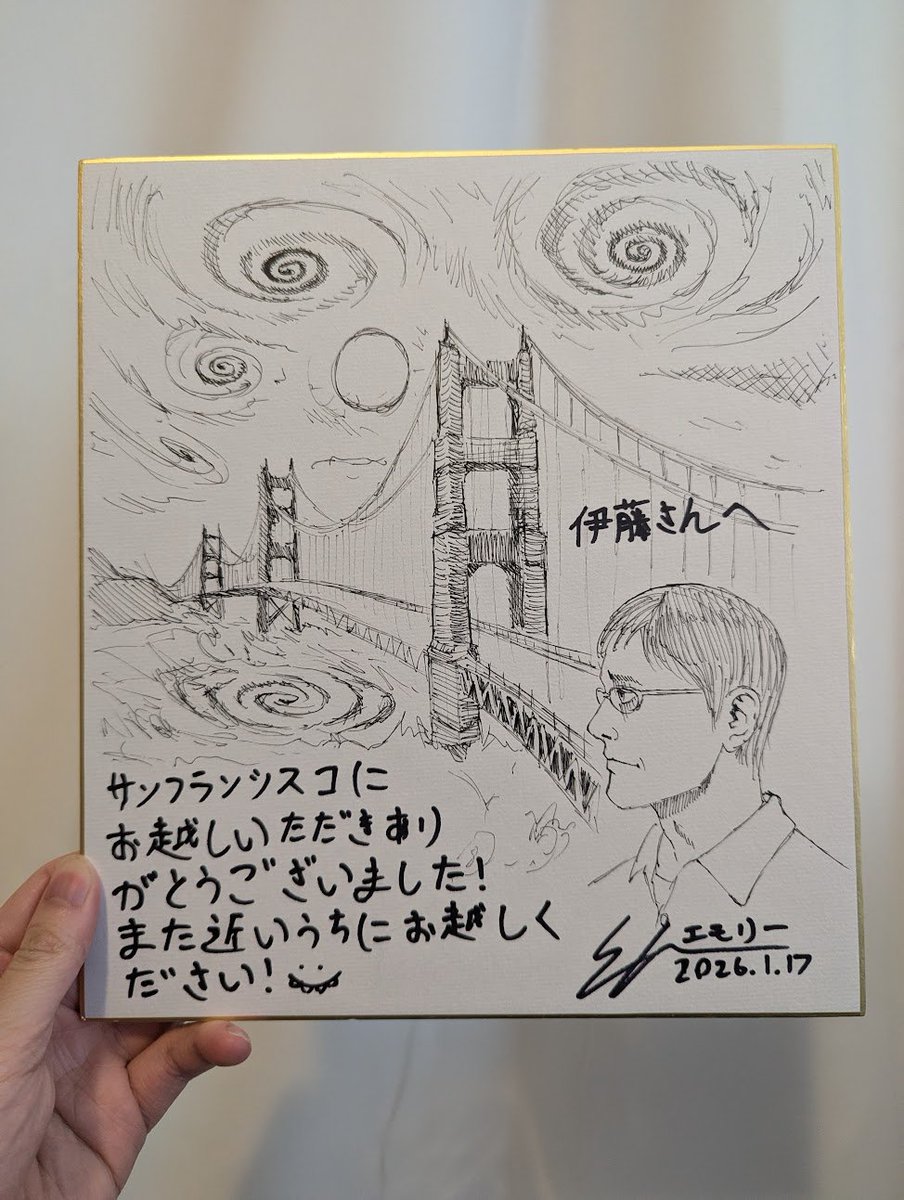 伊藤さんへ
サンフランシスコに
お越しいただきあり
がとうございました!
また近いうちにお越しく
ださい!
エモリー
2026.1.17